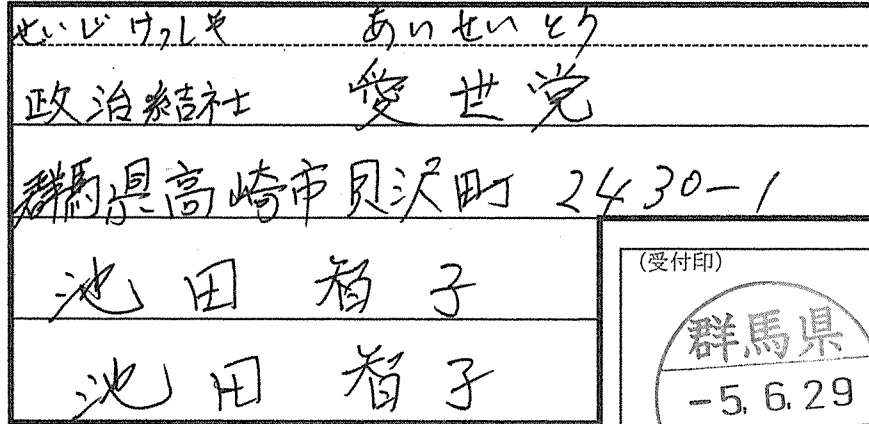 せいじけっしゃ あいせいとう
政治結社 愛世党
群馬県高崎市貝沢町 2430-1
池田 智子
(受付印)
池田 智子
群馬県
-5.6.29